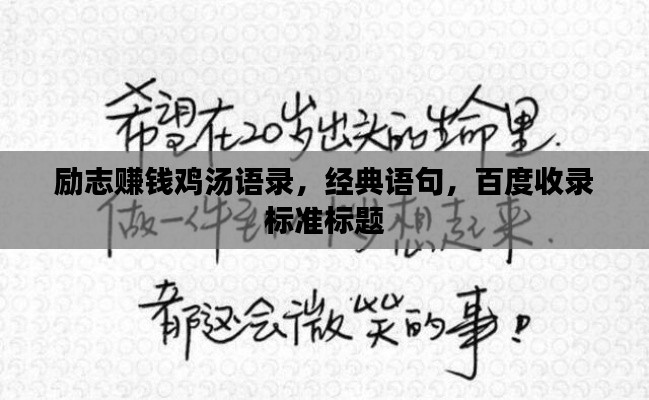 希望在20岁出头的生命里.
励志赚钱鸡汤语录，经典语句，百度收录
标准标题
做一件 岁想起来.
都还会微笑的事!